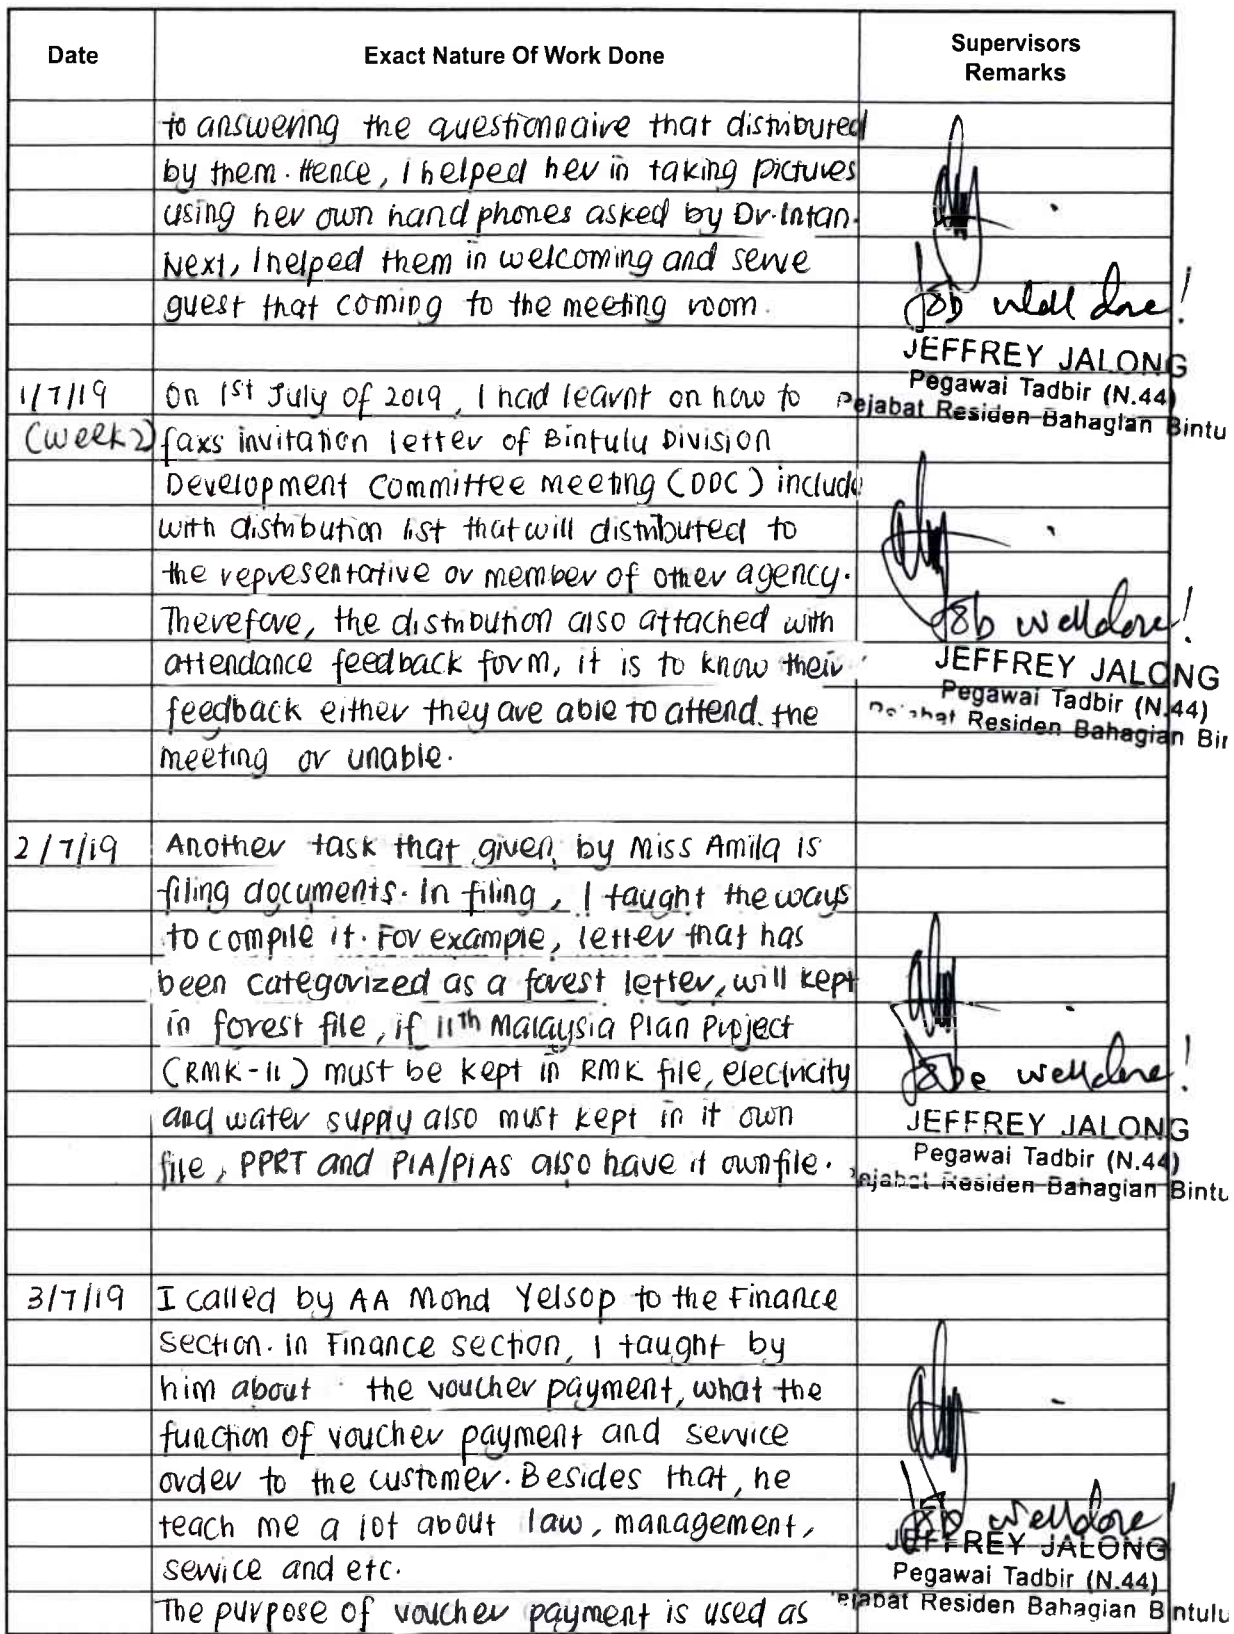 Date
Exact Nature Of Work Done
Supervisors
Remarks
to answering the questionnaire that distributed
by them. Hence, I helped her in taking pictures
using her own hand phones asked by Dr. Intan.
Next, I helped them in welcoming and serve
guest that coming to the meeting room.
Job well done!
JEFFREY JALONG
Pegawai Tadbir (N.44)
Pejabat Residen Bahagian Bintu
1/7/19
(Week 2)
On 1st July of 2019, I had learnt on how to
faxs invitation letter of Bintulu Division
Development Committee meeting (DDC) include
with distribution list that will distributed to
the representative or member of other agency.
Therefore, the distribution also attached with
attendance feedback form, it is to know their
feedback either they are able to attend the
meeting or unable.
Job well done!
JEFFREY JALONG
Pegawai Tadbir (N.44)
Residen Bahagian Bin
2/7/19
Another task that given by Miss Amila is
filing documents. In filing, I taught the ways
to compile it. For example, letter that has
been categorized as a forest letter, will kept
in forest file, if 11th Malaysia Plan Project
(RMK-11) must be kept in RMK file, electricity
and water supply also must kept in it own
file, PPRT and PIA/PIAS also have it own file.
Jobe well done!
JEFFREY JALONG
Pegawai Tadbir (N.44)
Pejabat Residen Bahagian Bintu
3/7/19
I called by AA Mohd Yelsop to the Finance
Section. In Finance section, I taught by
him about the voucher payment, what the
function of voucher payment and service
order to the customer. Besides that, he
teach me a lot about law, management,
service and etc.
The purpose of voucher payment is used as
Job well done!
JEFFREY JALONG
Pegawai Tadbir (N.44)
Pejabat Residen Bahagian Bintulu